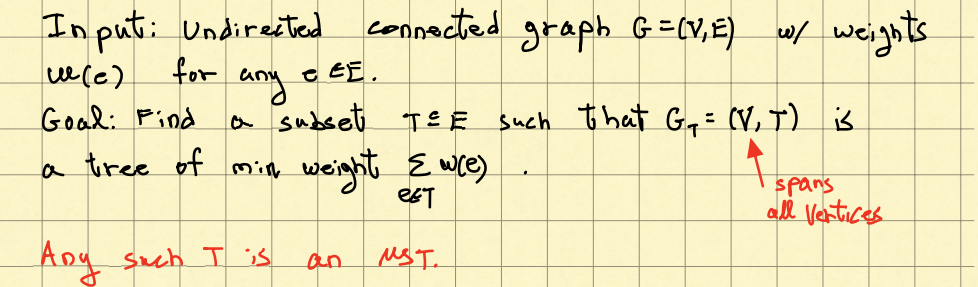 Input: Undirected connected graph G=(V,E) w/ weights
w(e) for any e∈E.
Goal: Find a subset T⊆E such that G_T = (V, T) is
a tree of min weight Σ_{e∈T} w(e).
spans
all vertices
Any such T is an MST.